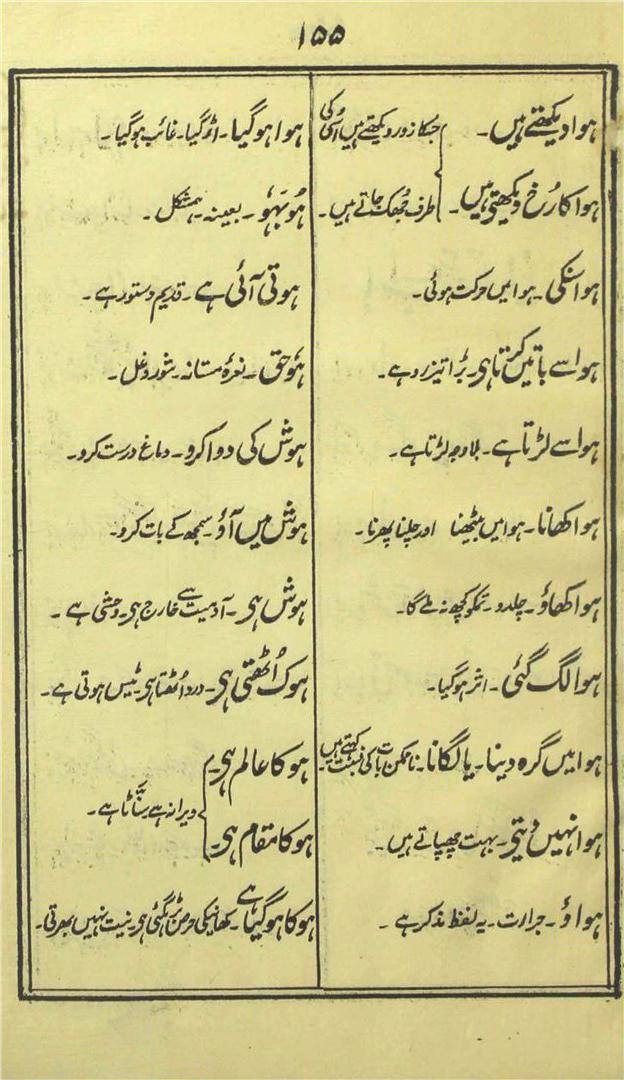 ۱۵۵
ہوا دیکھتے ہیں۔ جسکا زور دیکھتے ہیں اُسی کی
ہوا کا رُخ دیکھتے ہیں۔ طرف جُھک جاتے ہیں۔
ہوا سنکی۔ ہوا میں حرکت ہوئی۔
ہوا سے باتیں کرتا ہی۔ بڑا تیز رو ہے۔
ہوا سے لڑتا ہے۔ بلا وجہ لڑتا ہے۔
ہوا کھانا۔ ہوا میں بیٹھنا اور چلنا پھرنا۔
ہوا کھاؤ۔ چلدو۔ تمکو کچھ نہ ملے گا۔
ہوا لگ گئی۔ اثر ہو گیا۔
ہوا میں گرہ دینا۔ یا لگانا۔ ناممکن بات کی نسبت کہتے ہیں۔
ہوا نہیں دیتی۔ بہت چھپاتے ہیں۔
ہواؤ۔ جرارت۔ یہ لفظ مذکر ہے۔
ہوا ہو گیا۔ اُڑ گیا۔ غائب ہو گیا۔
ہُو بَہُو۔ بعینہ۔ ہمشکل۔
ہوتی آئی ہے۔ قدیم دستور ہے۔
ہُو حق۔ نعرۂ مستانہ۔ شور و غل۔
ہوش کی دوا کرو۔ دماغ درست کرو۔
ہوش میں آؤ۔ سمجھ کے بات کرو۔
ہوش ہی۔ آدمیت سے خارج ہی۔ وحشی ہے۔
ہوک اُٹھتی ہی۔ درد اُٹھتا ہی۔ ٹیس ہوتی ہے۔
ہو کا عالم ہی۔
ویرانہ ہے سنّاٹا ہے۔
ہو کا مقام ہی۔
ہوکا ہو گیا ہے۔ کھانیکی حرص بڑھ گئی ہی۔ نیت نہیں بھرتی۔